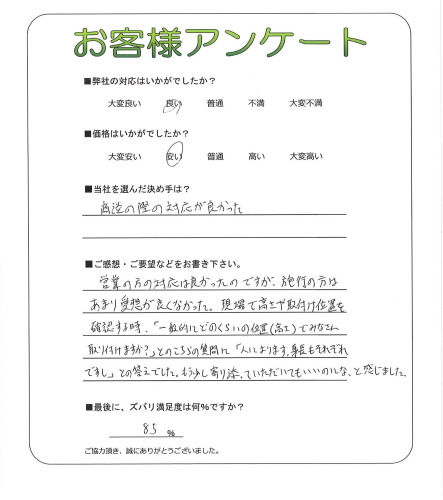 お客様アンケート
■弊社の対応はいかがでしたか？
大変良い 良い 普通 不満 大変不満
■価格はいかがでしたか？
大変安い 安い 普通 高い 大変高い
■当社を選んだ決め手は？
商談の際の対応が良かった
■ご感想・ご要望などをお書き下さい。
営業の方の対応は良かったのですが、施行の方は
あまり愛想が良くなかった。現場で高さや取付け位置を
確認する時、「一般的にどのくらいの位置(高さ)でみなさん
取り付けますか?」とのこちらの質問に「人によります。身長もそれぞれ
ですし」との答えでした。もう少し寄り添っていただいてもいいのにな、と感じました。
■最後に、ズバリ満足度は何%ですか？
85 %
ご協力頂き、誠にありがとうございました。